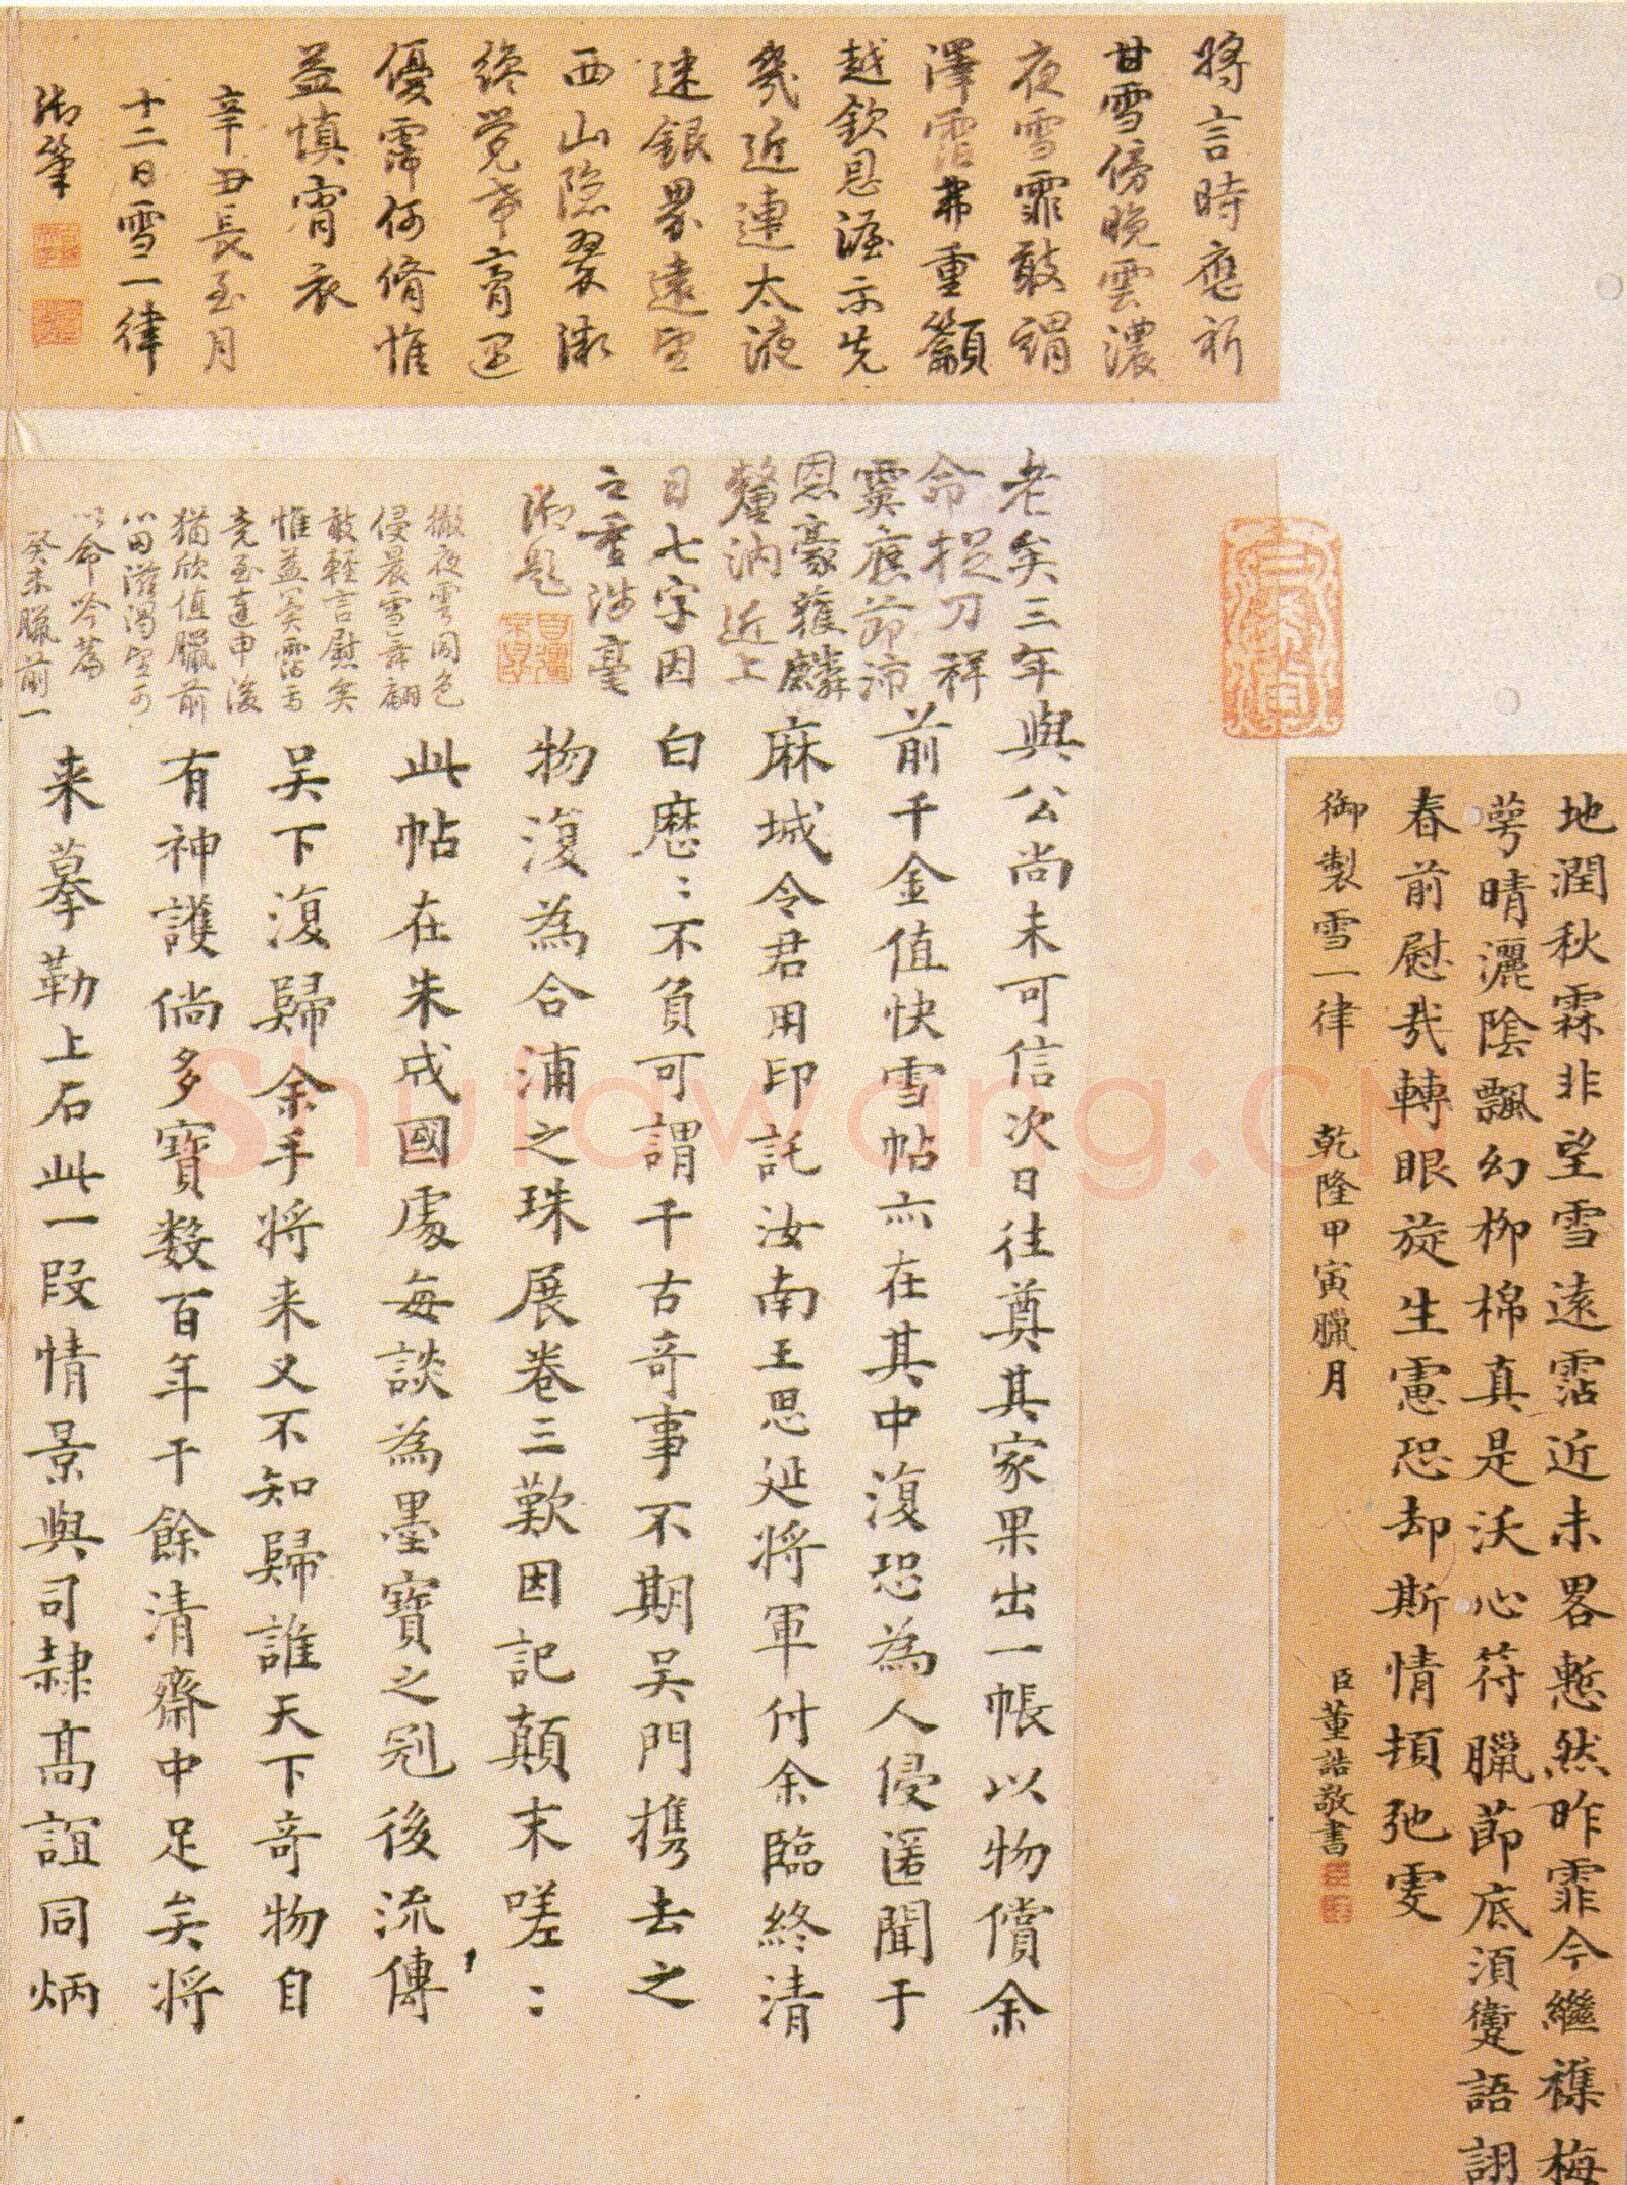 將言時應祈
甘雪傍晚雲濃
夜雪霏敢謂
澤霑弗重籲
越欽恩渥示先
幾近連太液
迷銀界遠望
西山隱翠微
終覺章育遲
優霈何脩惟
益慎宵衣
辛丑長至月
十二日雪一律
御筆
地潤秋霖非望雪遠霑近未畧慙然昨霏今繼襍梅
萼晴灑陰飄幻柳棉真是沃心符臘節底須躗語詡
春前慰哉轉眼旋生慮恐却斯情頓弛雯
御製雪一律 乾隆甲寅臘月
臣董誥敬書
老矣三年
命捉刀祥
霙應節沛
恩豪獲麟
釐訥近上
日七字因
之重涉毫
御題
撒夜雲同色
侵晨雪舞翩
敢輕言慰矣
惟益冀霑焉
堯至達申後
猶欣值臘前
心田滋渴望可
以命吟篇
癸未臘前一
與公尚未可信次日往奠其家果出一帳以物償余
前千金值快雪帖亦在其中復恐為人侵匿聞于
麻城令君用印託汝南王思延將軍付余臨終清
白歷:不負可謂千古奇事不期吳門攜去之
物復為合浦之珠展卷三歎因記顛末嗟:
此帖在朱成國處每談為墨寶之冠後流傳
吳下復歸余手將來又不知歸誰天下奇物自
有神護倘多寶數百年于餘清齋中足矣將
来摹勒上石此一段情景與司隸高誼同炳
Shufawang.CN